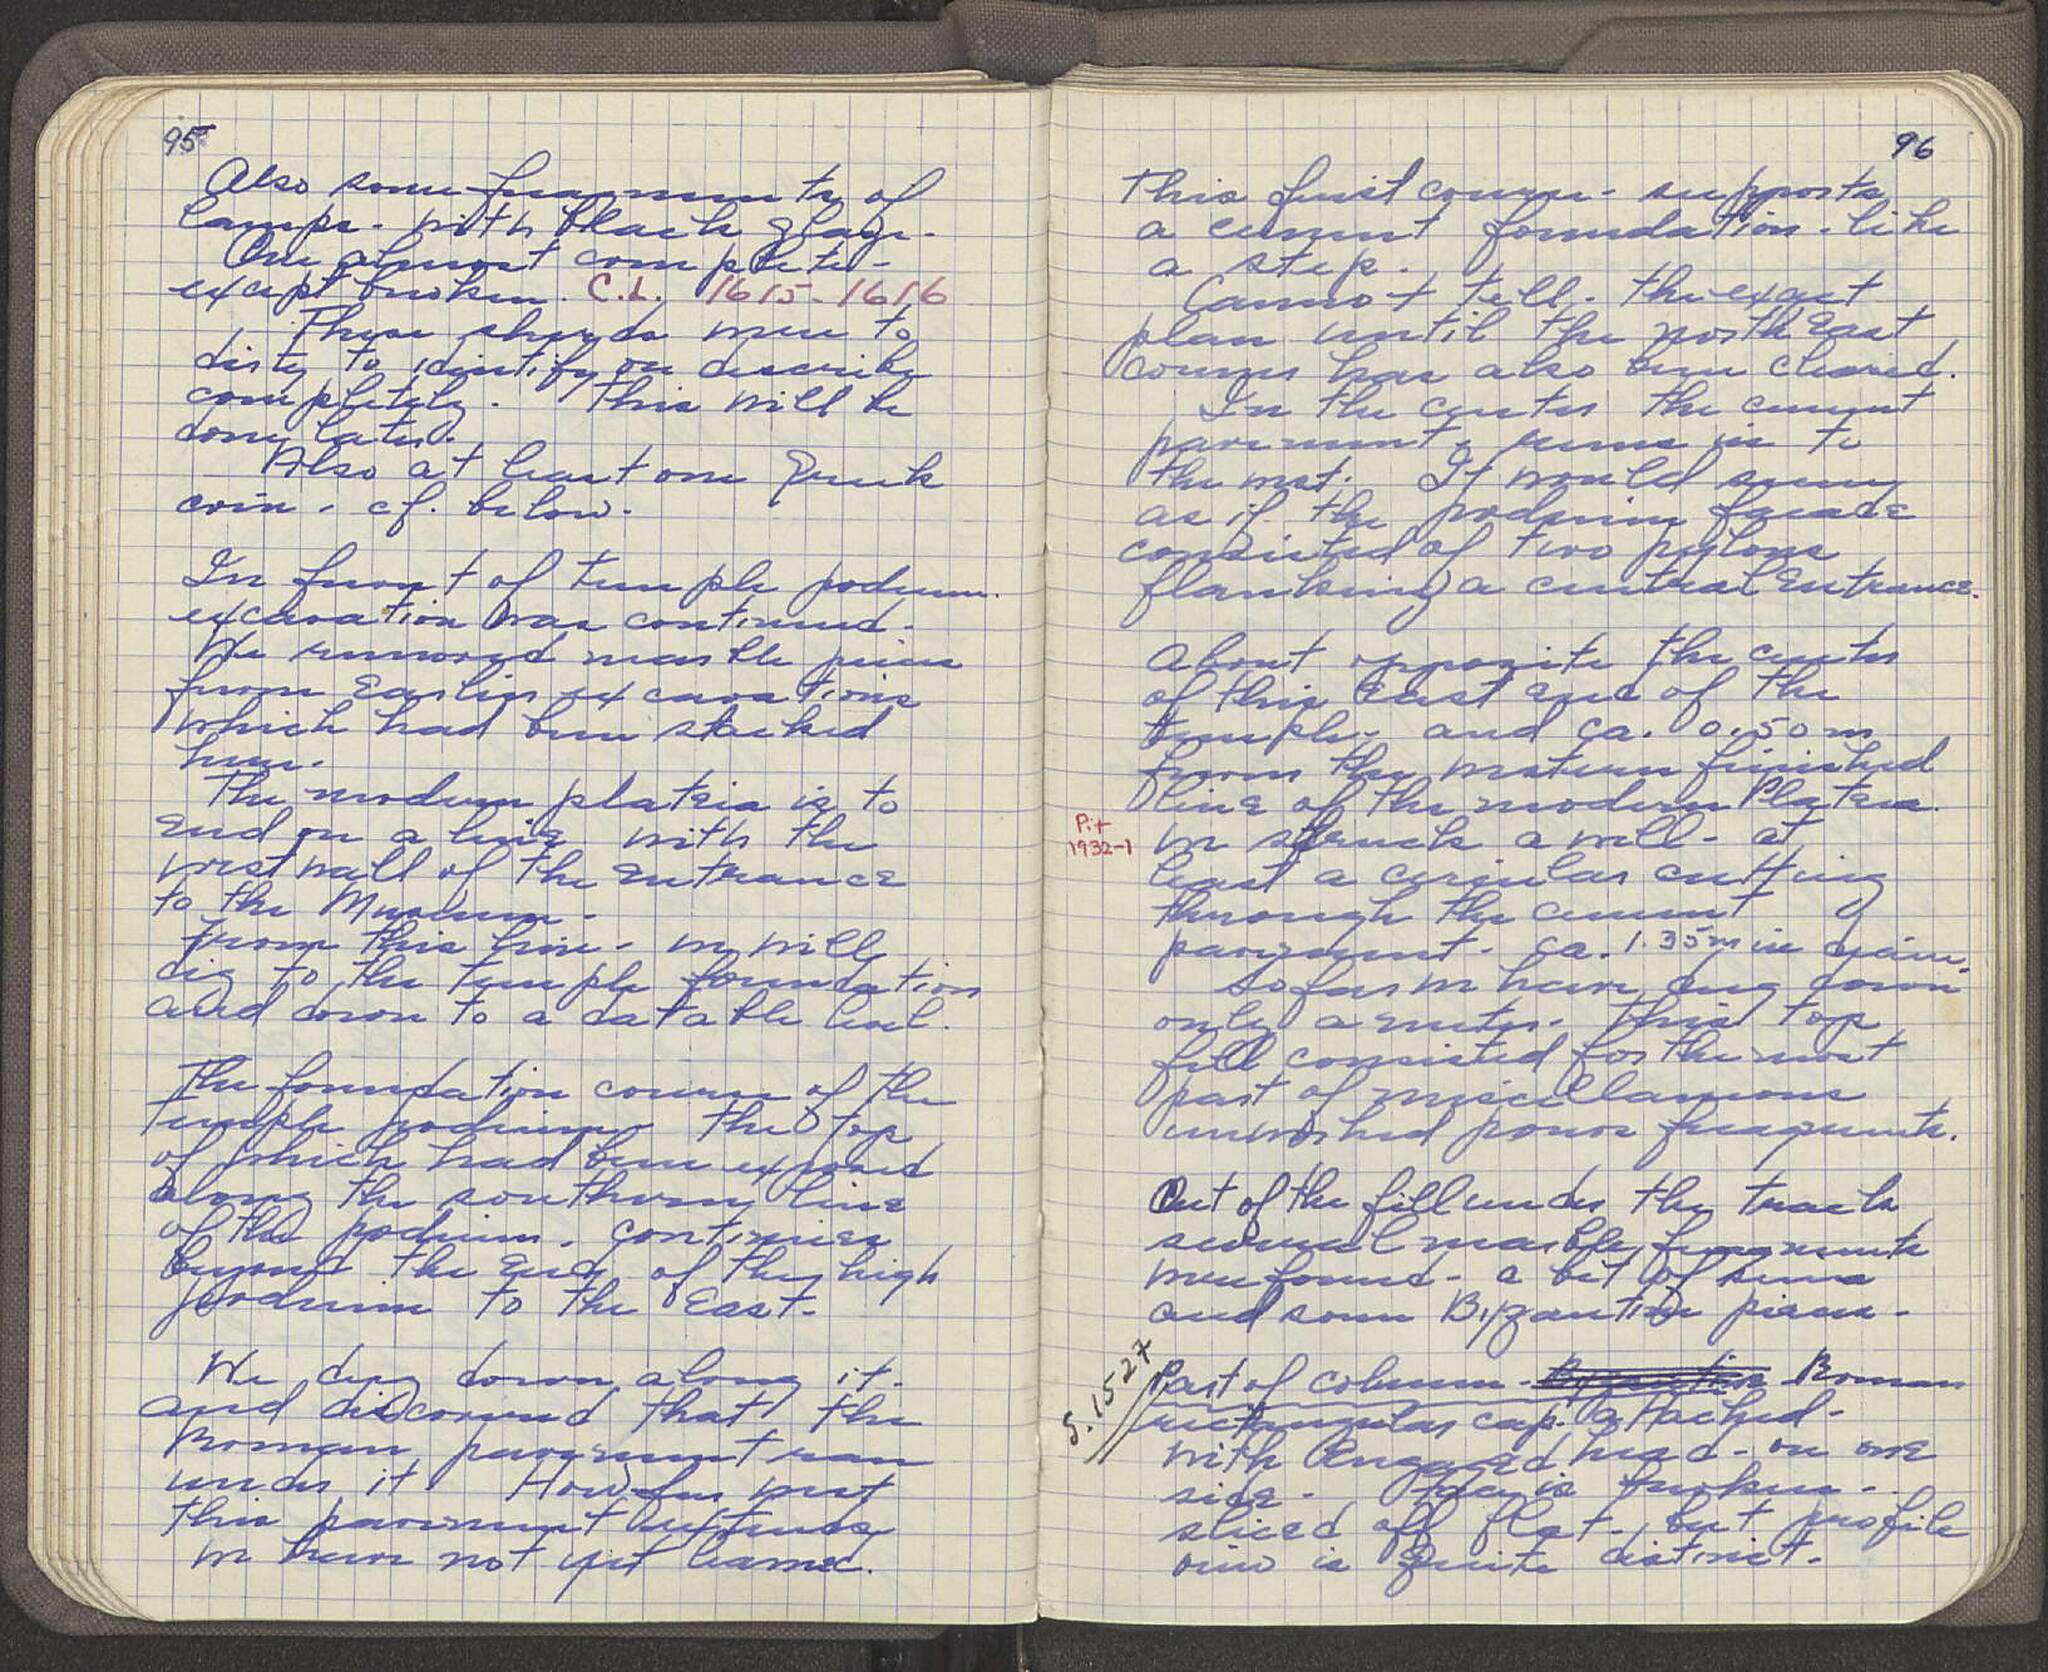 95
Also some fragments of
lamps - with black glaze -
One almost complete -
except broken. C.L. 1615-1616
These sherds were to
dirty to identify or describe
completely. This will be
done later.
Also at least one Greek
coin - cf. below.
In front of temple podium
excavation was continued.
We removed marble pieces
from earlier excavations
which had been stacked
here.
The modern plateia is to
end on a line with the
west wall of the entrance
to the Museum -
From this line - we will
dig to the temple foundation
and down to a datable level.
The foundation course of the
temple podium - the top
of which had been exposed
along the southern line
of the podium, continues
beyond the end of the high
podium to the East.
We dug down along it -
and discovered that the
Roman pavement ran
under it. How far west
this pavement extends
we have not yet learned.
96
This first course - supports
a cement foundation - like
a step.
Cannot tell - the exact
plan until the north East
corner has also been cleared.
In the center the cement
pavement runs in to
the west. It would seem
as if the podium facade
consisted of two pylons
flanking a central entrance.
About opposite the center
of this East end of the
temple - and ca. 0.50 m
from the western finished
line of the modern Plateia
Pit
1932-1
we struck a well - at
least a circular cutting
through the cement
pavement - ca. 1.35m in diam.
So far we have dug down
only a meter. This top
fill consisted for the most
part of miscellaneous
unworked poros fragments.
Out of the fill under the track
several marble fragments
were found - a bit of sima
and some Byzantine pieces -
S. 1527
Part of column - Byzantine Roman
rectangular cap. attached -
with Engaged head - on one
side - face is broken -
sliced off flat - but profile
view is quite distinct.